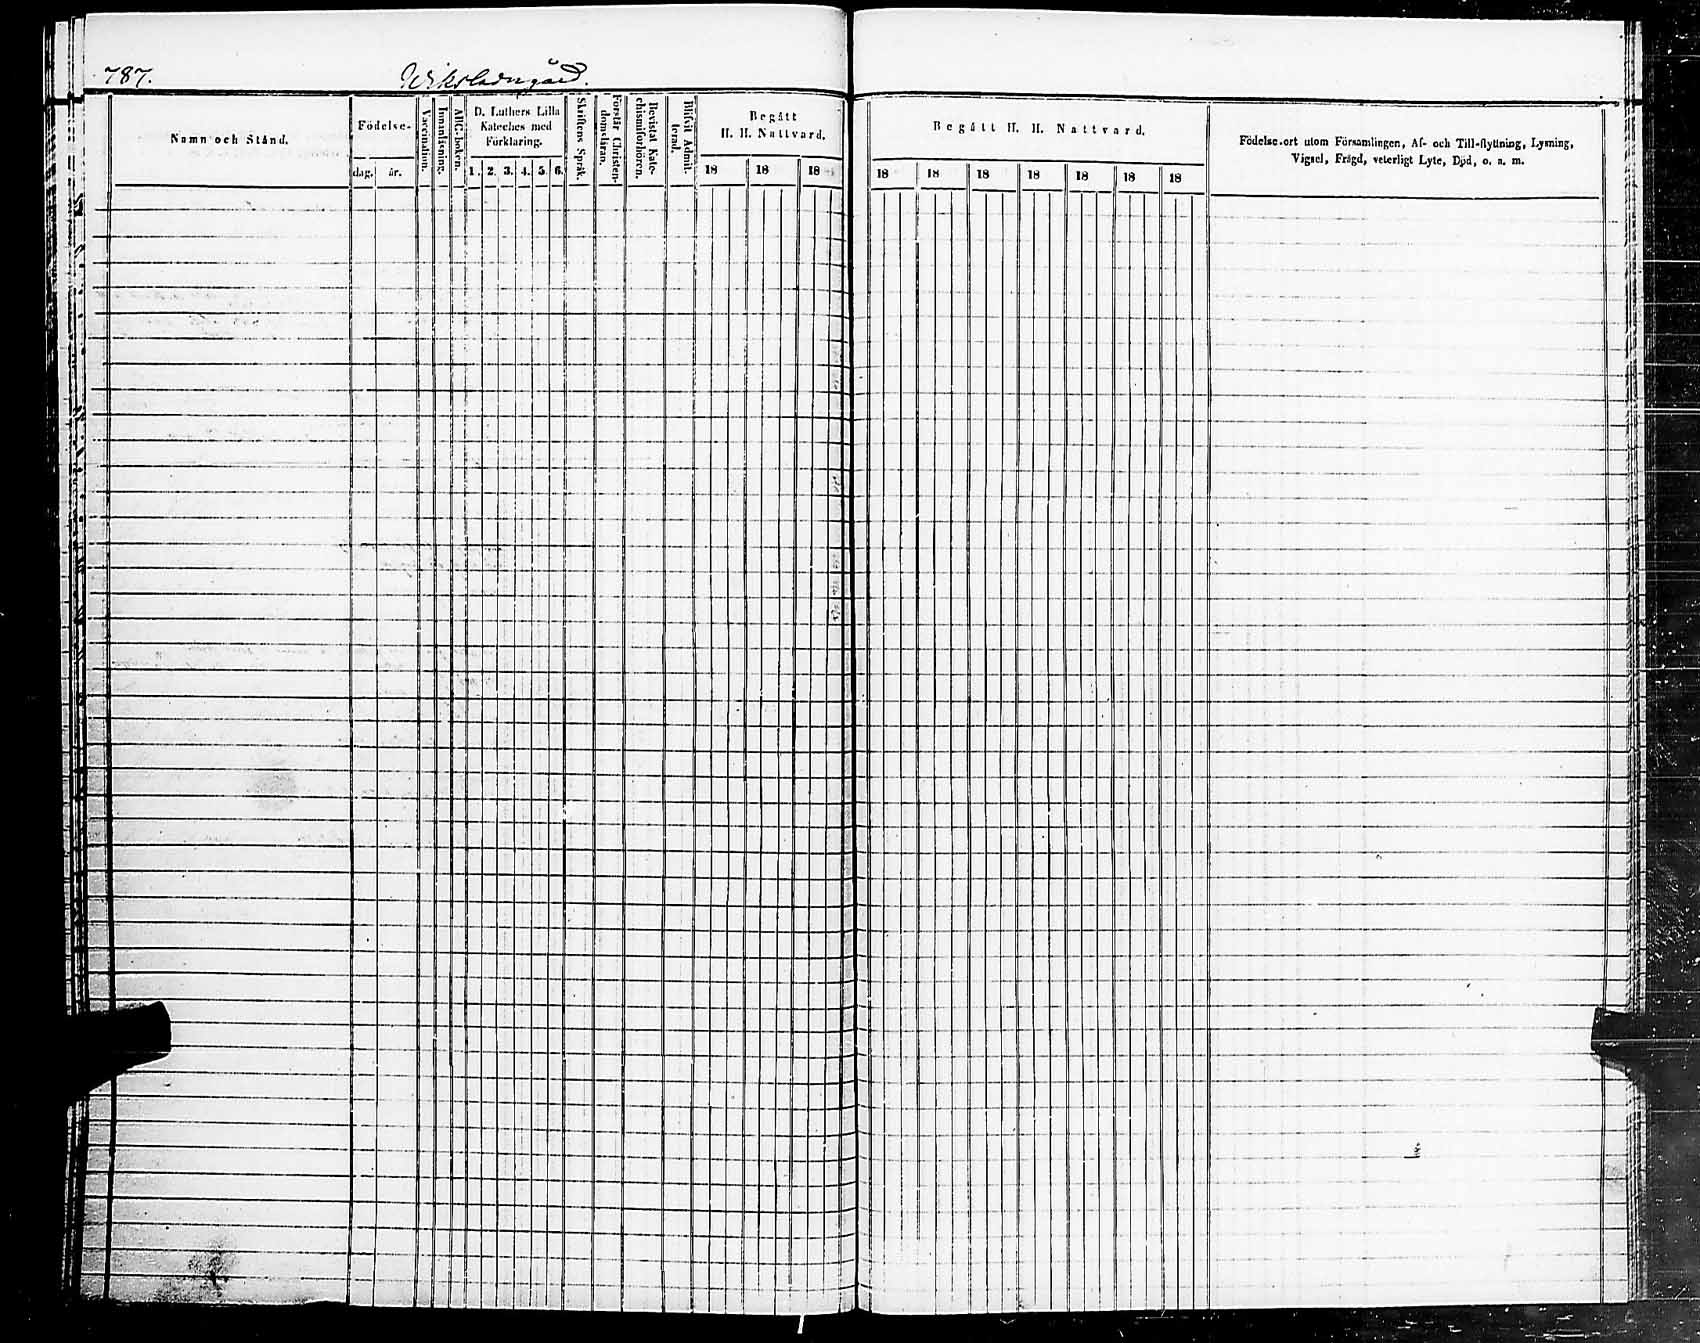 787.
Namn och Stånd.
Födelse-
dag.
år.
Vaccination.
Innanläsning.
ABC-boken.
D. Luthers Lilla
Kateches med
Förklaring.
1. 2. 3. 4. 5. 6.
Skriftens Språk.
Förstår Christen-
domsläran.
Bevistat Kate-
chismiförhören.
Blifvit Admit-
terad.
Begått
H. H. Nattvard.
18 18 18
Begått H. H. Nattvard.
18 18 18 18 18 18 18
Födelse-ort utom Församlingen, Af- och Till-flyttning, Lysning,
Vigsel, Frägd, veterligt Lyte, Död, o. s. m.